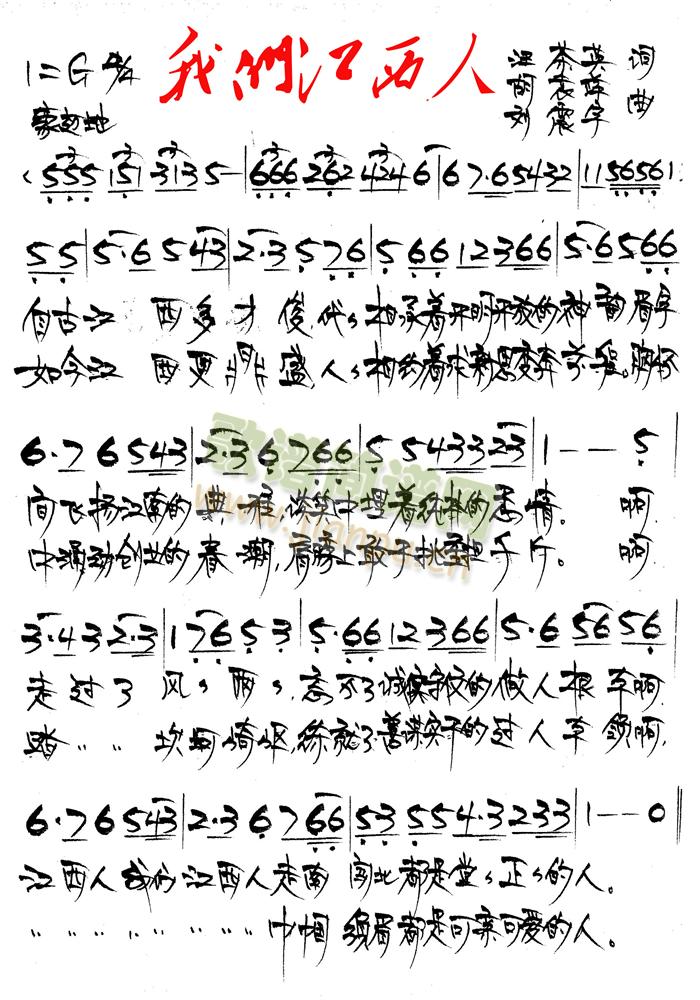 我们江西人
1=G 4/4
词
曲
(555 151 313 5-|666 262 424 6|6 7·65432|11 5656 1
55|5·6 543|2·3 576|5 66 12366|5·6 566
自古江 西多才俊,代代相承着开明开放的神韵眉宇
如今江 西更 盛,人人相约着求新思变奔前程。胸怀
6·76543|2·3 6766|5 543323|1--5
间飞扬江南的典 中 着纯朴的 情。啊
中涌动创业的春潮,肩膀上敢于挑 千斤。啊
3·432·3|17653|5·66 12366|5·6 5656
走过了风风雨雨,忘不了诚实守 的做人根本啊
踏〃〃坎坷崎岖,练就了善谋实干的过人本领啊,
6·76543|2·3 6766|53 554·3233|1--0
江西人我们江西人走南 闯北都是堂堂正正的人。
〃〃〃〃〃〃〃〃巾帼 须眉都是可亲可爱的人。
歌谱简谱网
www.jianpu.cn